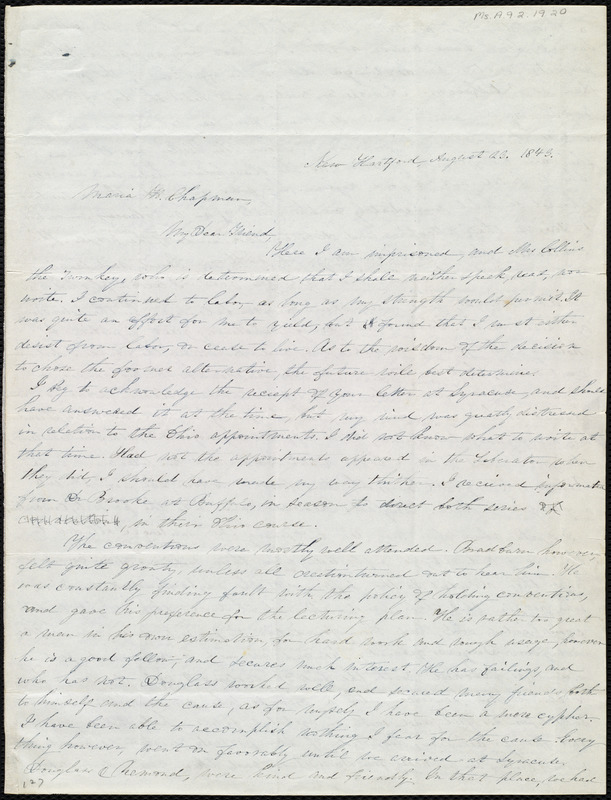 Ms. A.9.2.19.20
New Hartford August 23. 1843.
Maria W. Chapman,
My Dear Friend,
Here I am imprisoned, and Mrs Collins
the turnkey, who is determined that I shall neither speak, read, nor
write. I continued to labor as long as my strength would permit. It
was quite an effort for me to yield, but I found that I must either
desist from labor, or cease to live. As to the wisdom of the decision
to chose the former alternative, the future will best determine.
I beg to acknowledge the reciept of your letter at Syracuse, and should
have answered it at the time, but my mind was greatly distressed
in relation to the Ohio appointments. I did not know what to write at
that time. Had not the appointments appeared in the Liberator when
they did, I should have made my way thither. I received information
from Dr Brooke at Buffalo, in season to direct both series of
, in their Ohio course.
The conventions were mostly well attended. Bradburn however,
felt quite grouty, unless all creation turned out to hear him. He
was constantly finding fault with the policy of holding conventions,
and gave his preference for the lecturing plan. He is rather too great
a man in his own estimation, for hard work and rough usage, however
he is a good fellow, and secures much interest. He has failings, and
who has not. Douglass worked well, and secured many friends both
to himself and the cause, as for myself I have been a mere cypher.
I have been able to accomplish nothing I fear for the cause. Every
thing however, went on favorably until we arrived at Syracuse.
Douglass & Remond, were kind and friendly. In that place, we had
127